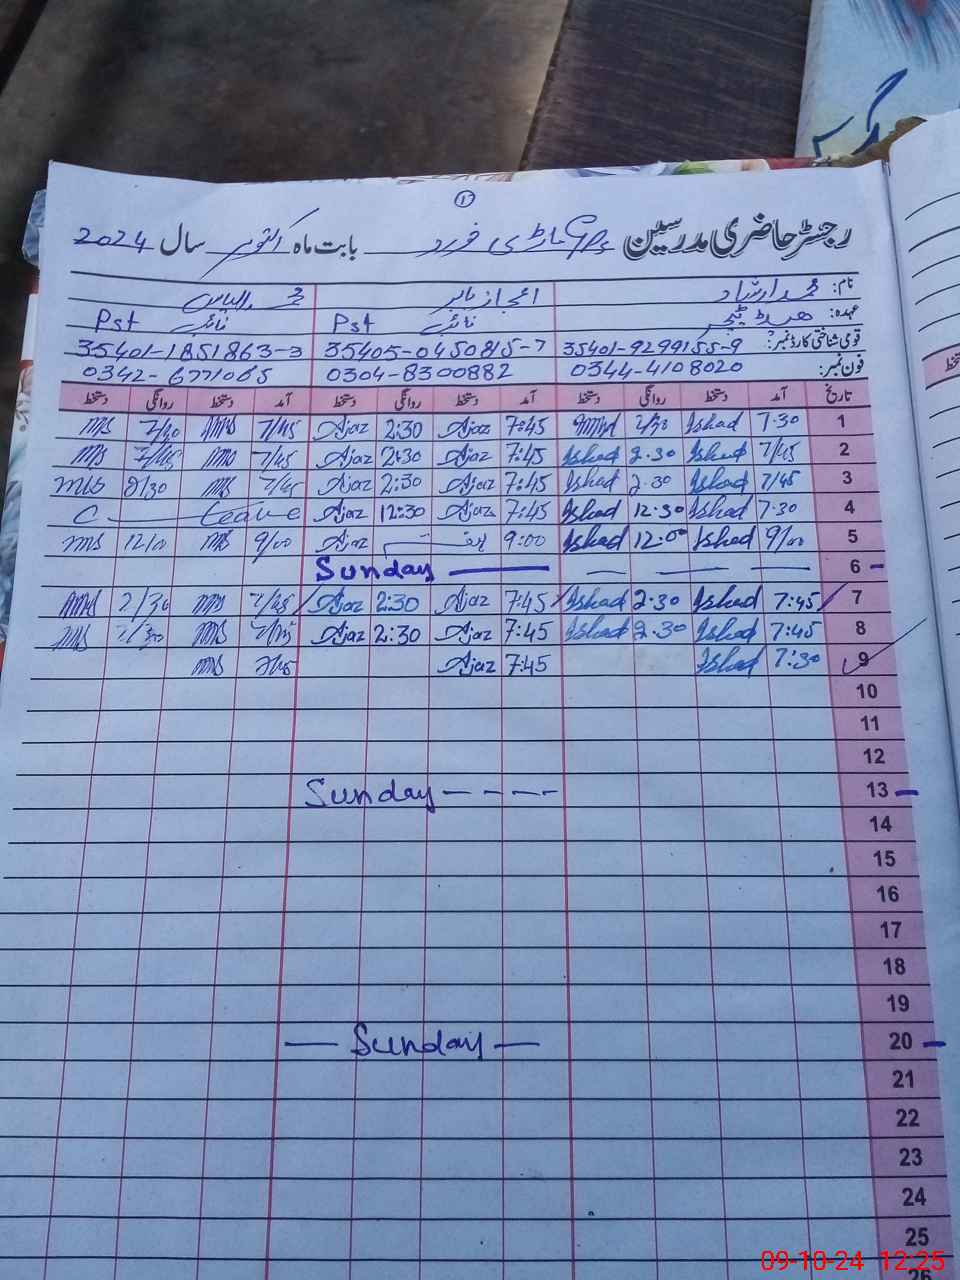 1
رجسٹر حاضری مدرسین GPS مارٹی خورد بابت ماہ اکتوبر سال 2024
نام: محمد ارشاد اعجاز بابر محمد الیاس
عہدہ: ہیڈ ٹیچر نائب Pst نائب Pst
قومی شناختی کارڈ نمبر: 35401-9299155-9 35405-0450815-7 35401-1851863-3
فون نمبر: 0344-4108020 0304-8300882 0342-6771065
تاریخ آمد دستخط روانگی دستخط آمد دستخط روانگی دستخط آمد دستخط روانگی دستخط
1 7:30 Ishad 2/30 7:45 Ajaz 2:30 Ajaz 7/45 ms 2/30 ms
2 7/45 Ishad 2.30 Ishad 7:45 Ajaz 2:30 Ajaz 7/45 ms ms
3 7/45 Ishad 2.30 Ishad 7:45 Ajaz 2:30 Ajaz 7/45 ms 2/30 ms
4 7:30 Ishad 12.30 Ishad 7:45 Ajaz 12:30 Ajaz C Leave
5 9/00 Ishad 12:00 Ishad 9:00 Ajaz 9/00 ms 12/00 ms
6 Sunday
7 7:45 Ishad 2.30 Ishad 7:45 Ajaz 2:30 Ajaz 7/45 ms 2/30 ms
8 7:45 Ishad 2.30 Ishad 7:45 Ajaz 2:30 Ajaz 7/45 ms 2/30 ms
9 7:30 Ishad 7:45 Ajaz 7/45 ms
10
11
12
13 Sunday
14
15
16
17
18
19
20 Sunday
21
22
23
24
25
26
09-10-24 12:25